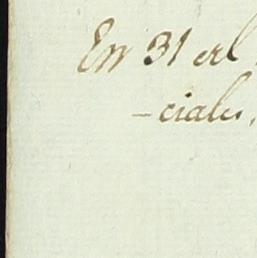 En 31 el
-ciales,